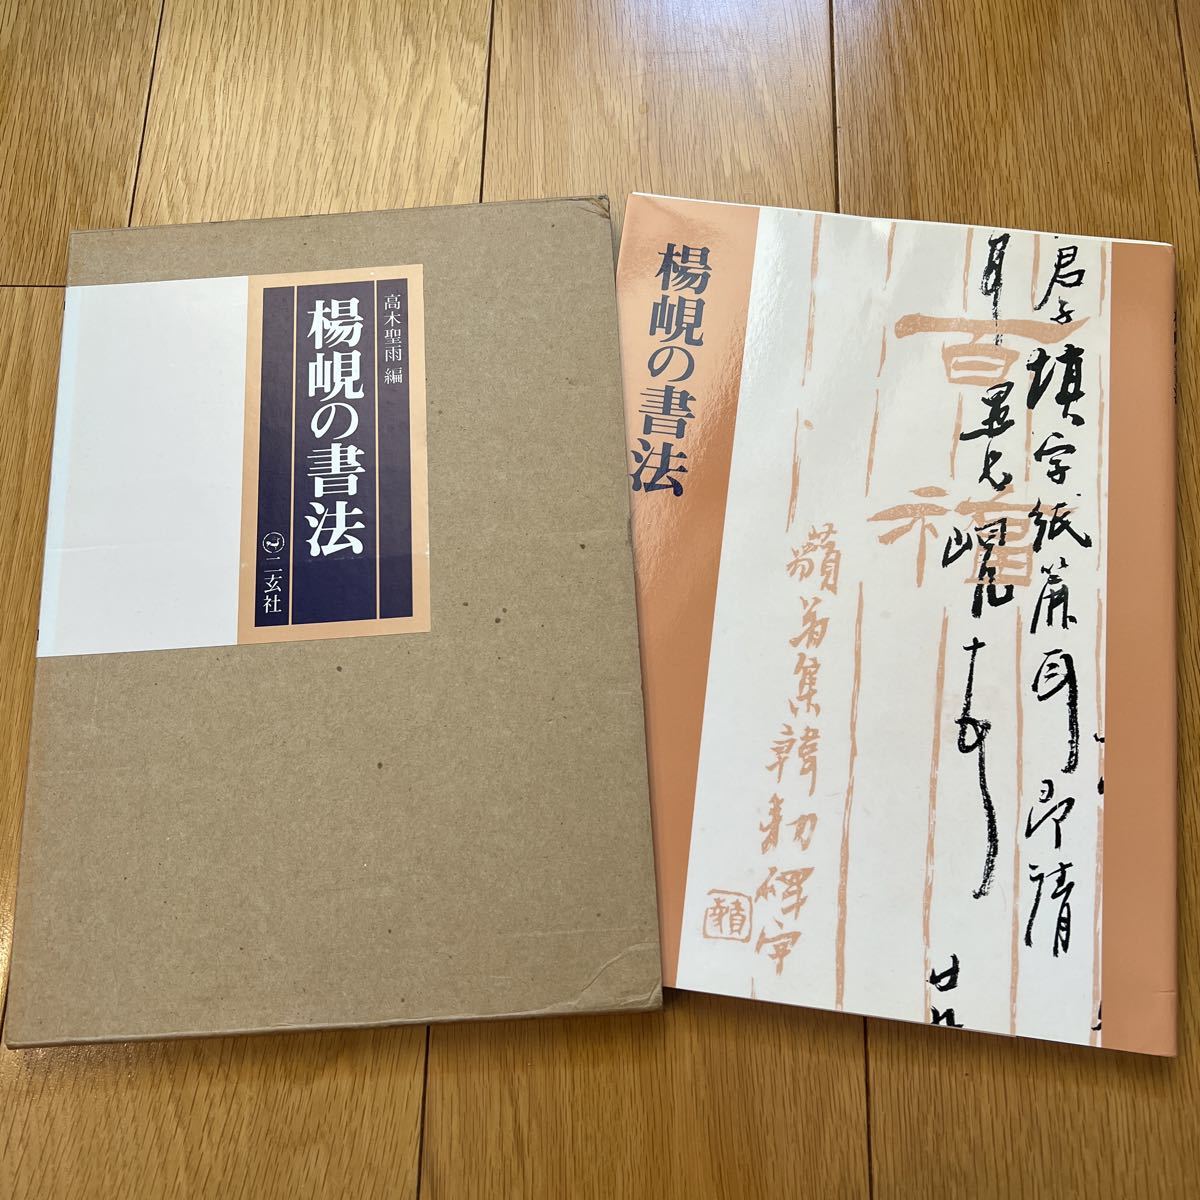 高木聖雨 編
楊峴の書法
二玄社
楊峴の書法
君子
填字紙簾耳即請
峴
百福
集韓勅碑字